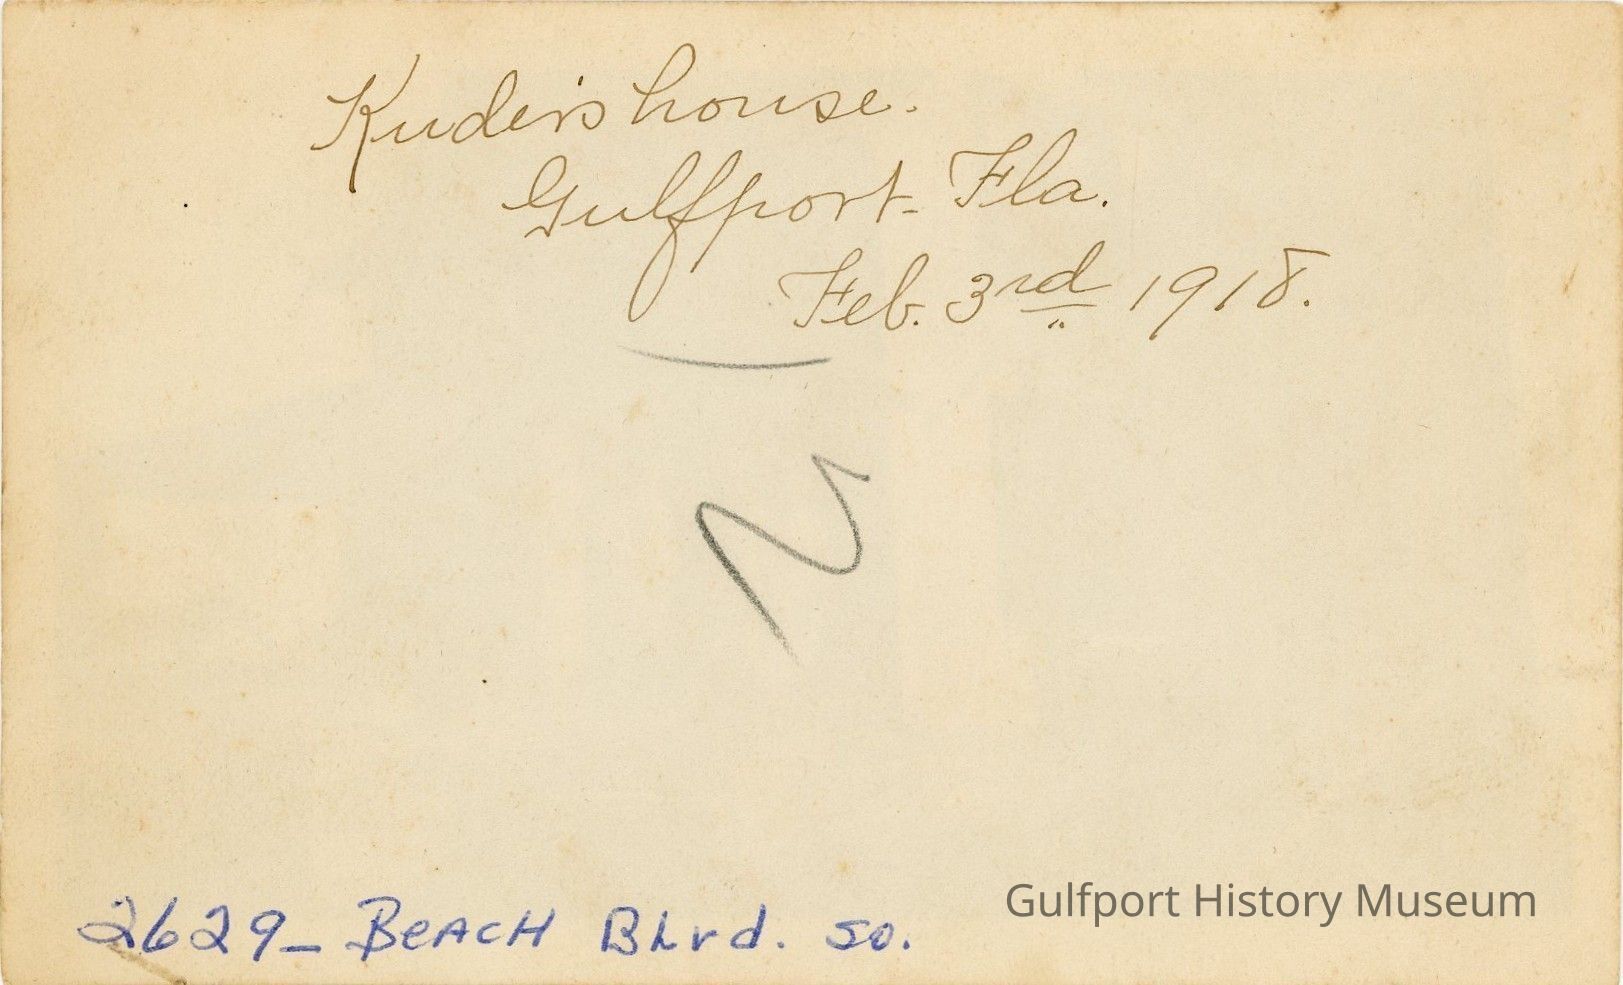 Kuder's house.
Gulfport - Fla.
Feb. 3rd 1918.
2629 - BEACH Blvd. So.
Gulfport History Museum